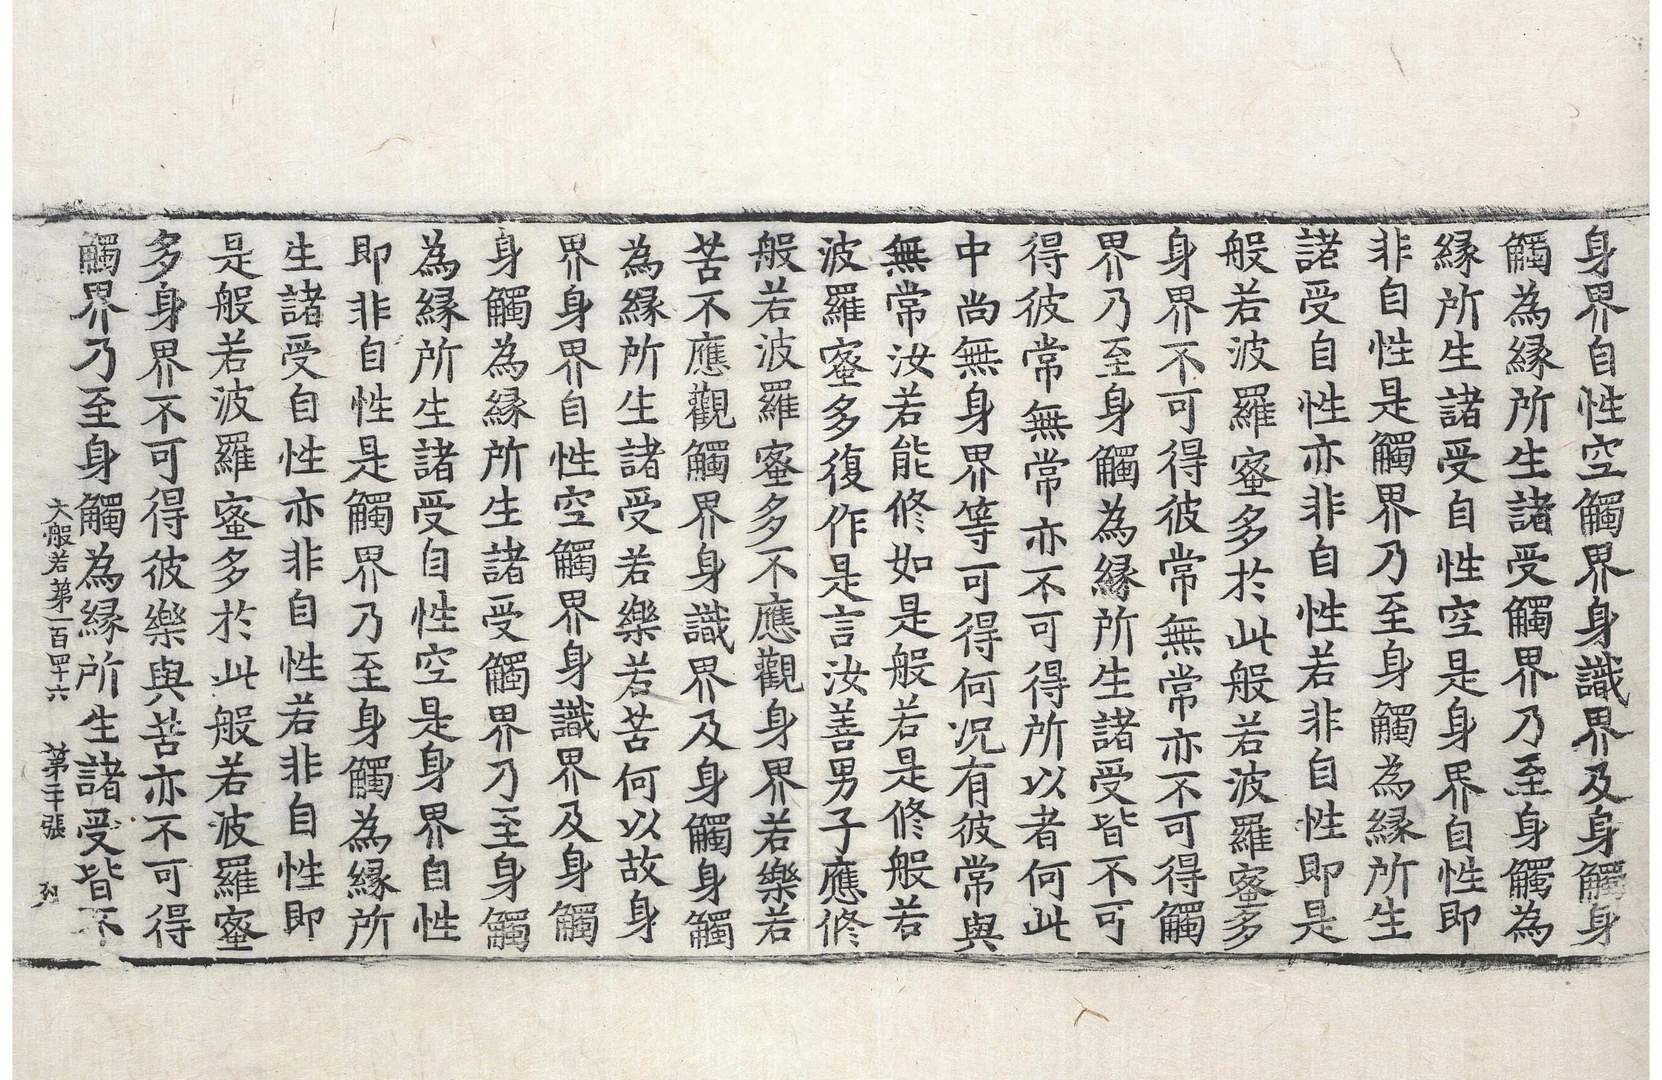 身界自性空觸界身識界及身觸身
觸為緣所生諸受觸界乃至身觸為
緣所生諸受自性空是身界自性即
非自性是觸界乃至身觸為緣所生
諸受自性亦非自性若非自性即是
般若波羅蜜多於此般若波羅蜜多
身界不可得彼常無常亦不可得觸
界乃至身觸為緣所生諸受皆不可
得彼常無常亦不可得所以者何此
中尚無身界等可得何況有彼常與
無常汝若能修如是般若是修般若
波羅蜜多復作是言汝善男子應修
般若波羅蜜多不應觀身界若樂若
苦不應觀觸界身識界及身觸身觸
為緣所生諸受若樂若苦何以故身
界身界自性空觸界身識界及身觸
身觸為緣所生諸受觸界乃至身觸
為緣所生諸受自性空是身界自性
即非自性是觸界乃至身觸為緣所
生諸受自性亦非自性若非自性即
是般若波羅蜜多於此般若波羅蜜
多身界不可得彼樂與苦亦不可得
觸界乃至身觸為緣所生諸受皆不
大般若第一百四十六 第二十張 列